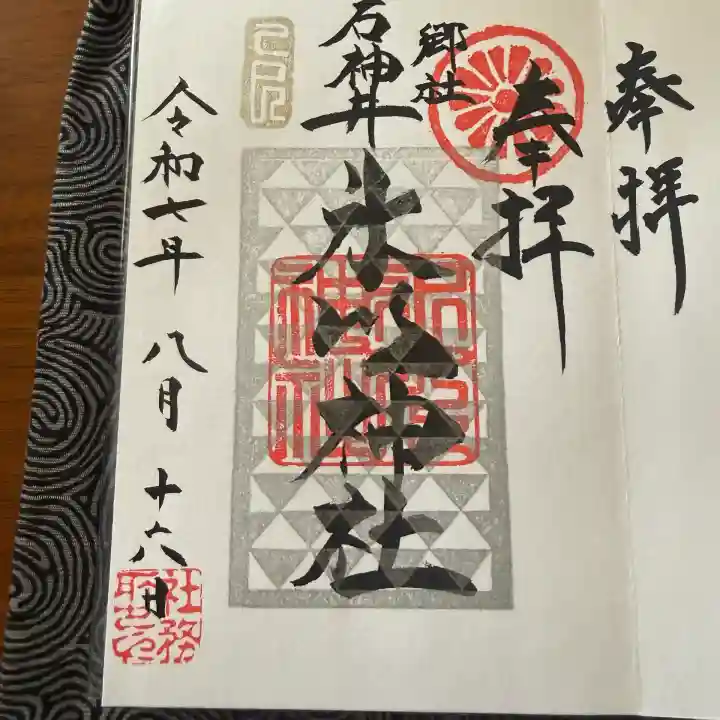 奉拝
奉拝
郷社
石神井
氷川神社
令和七年 八月 十六日
社務